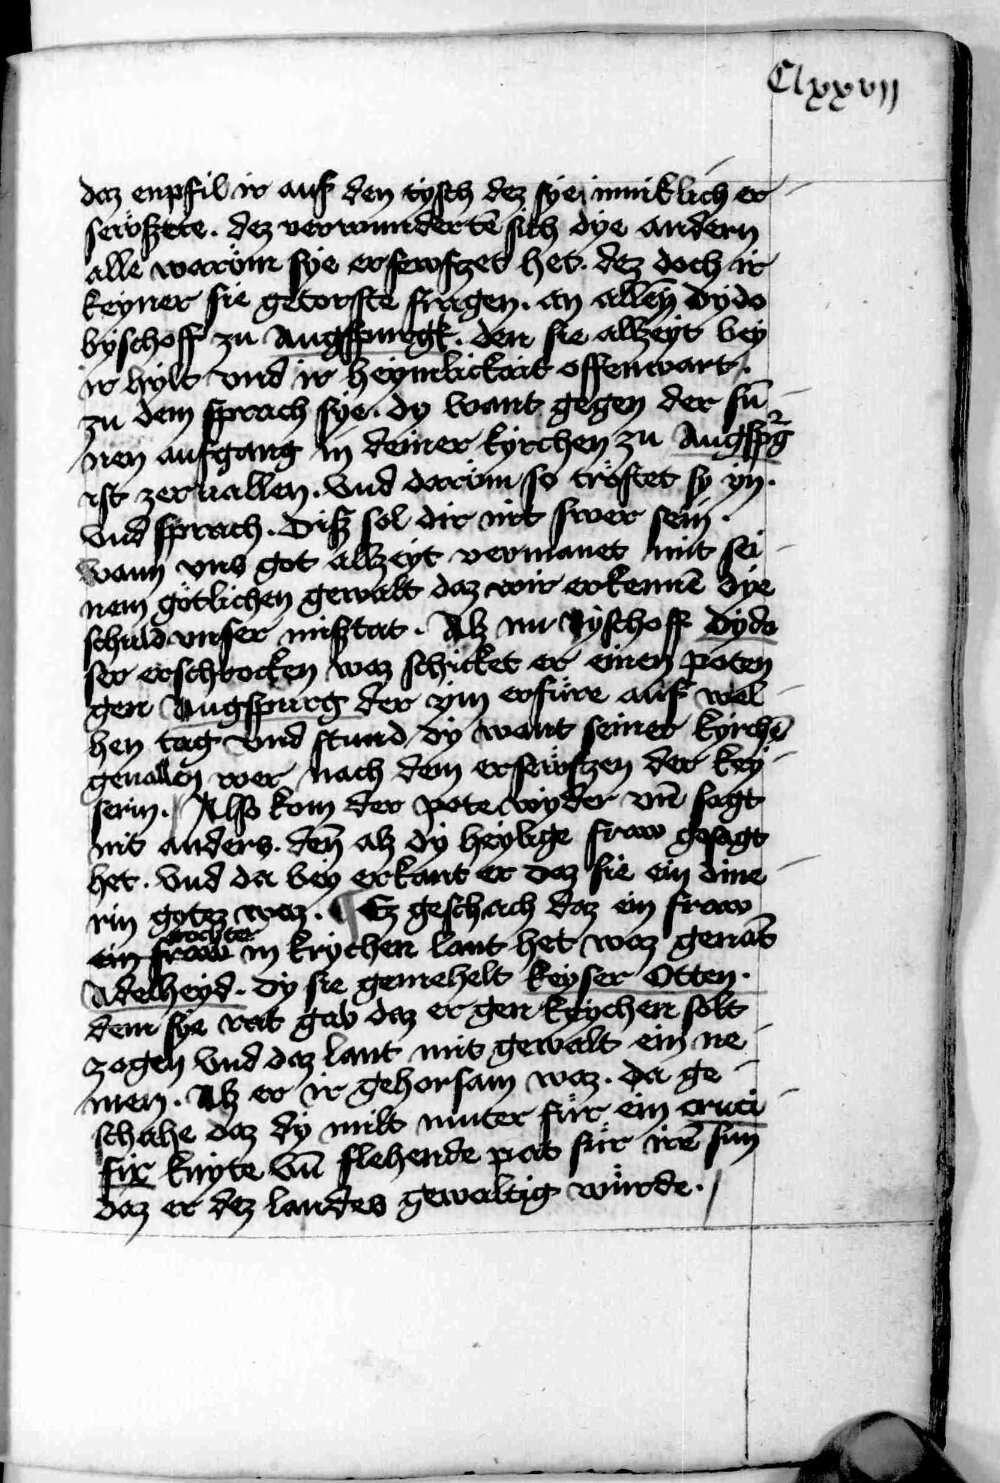 Clxxvij
daz enpfil ir auf den tysch dez sye inniklich er
sewfztte. dez verwunderte͂ sich dye andern
alle waru̇m sye ersewfzet het. dez doch ir
keyner sie getorste fragen. an alleÿ Dydo
byschoff zu Augspurgk. den sie allzeyt bey
ir hylt vnd ir heymlickait offenwart.
zu dem sprach sye. dy want gegen der su͂
nen aufgang in deiner kyrchen zu Augsp²g
ist zeruallen. Vnd daru̇m so tröstet sy yn.
Vnd sprach. Ditz sol dir nit swer sein.
wann vns got allzeyt vermanet mit sei
nem götlichen gewalt daz wir erkenne͂ dye
schuld vnser misztat. Alz nu byschoff Dydo
ser erschrocken waz schicket er einen poten
gen Augspurg der ym erfüre auf wel
hen tag vnd stund dy want seiner kyrche͂
geuallen wer nach dem ersewfzen der key
serin. Also kom der pote wyder vn͂ sagt
nit anders. den͂ alz dy heylige fraw gesagt
het. Vnd da bey erkant er daz sie ein dine
rin gotez waz. ¶ Ez geschach daz ein fraw
tochter
ein fraw in krychen lant het waz genat͂
Adelheyd. Dy sie gemehelt keyser Otten.
dem sye rat gab daz er gen krychen solt
zogen vnd daz lant mit gewalt ein ne
men. Alz er ir gehorsam waz. da ge
schahe daz dy milt muter für ein cruci
fix knyte vn͂ flehende pat für ire͂ sun
daz er dez landes gewaltig würde.